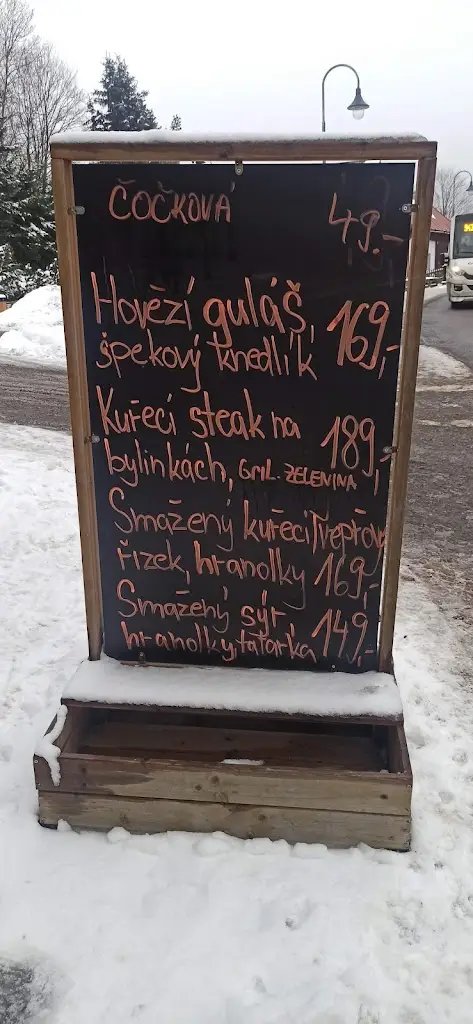 ČOČKOVÁ 49.-
Hovězí guláš,
špekový knedlík 169,-
Kuřecí steak na
bylinkách, GRIL. ZELENINA 189,-
Smažený kuřecí/vepřový
řízek, hranolky 169.-
Smažený sýr,
hranolky, tatarka 149,-